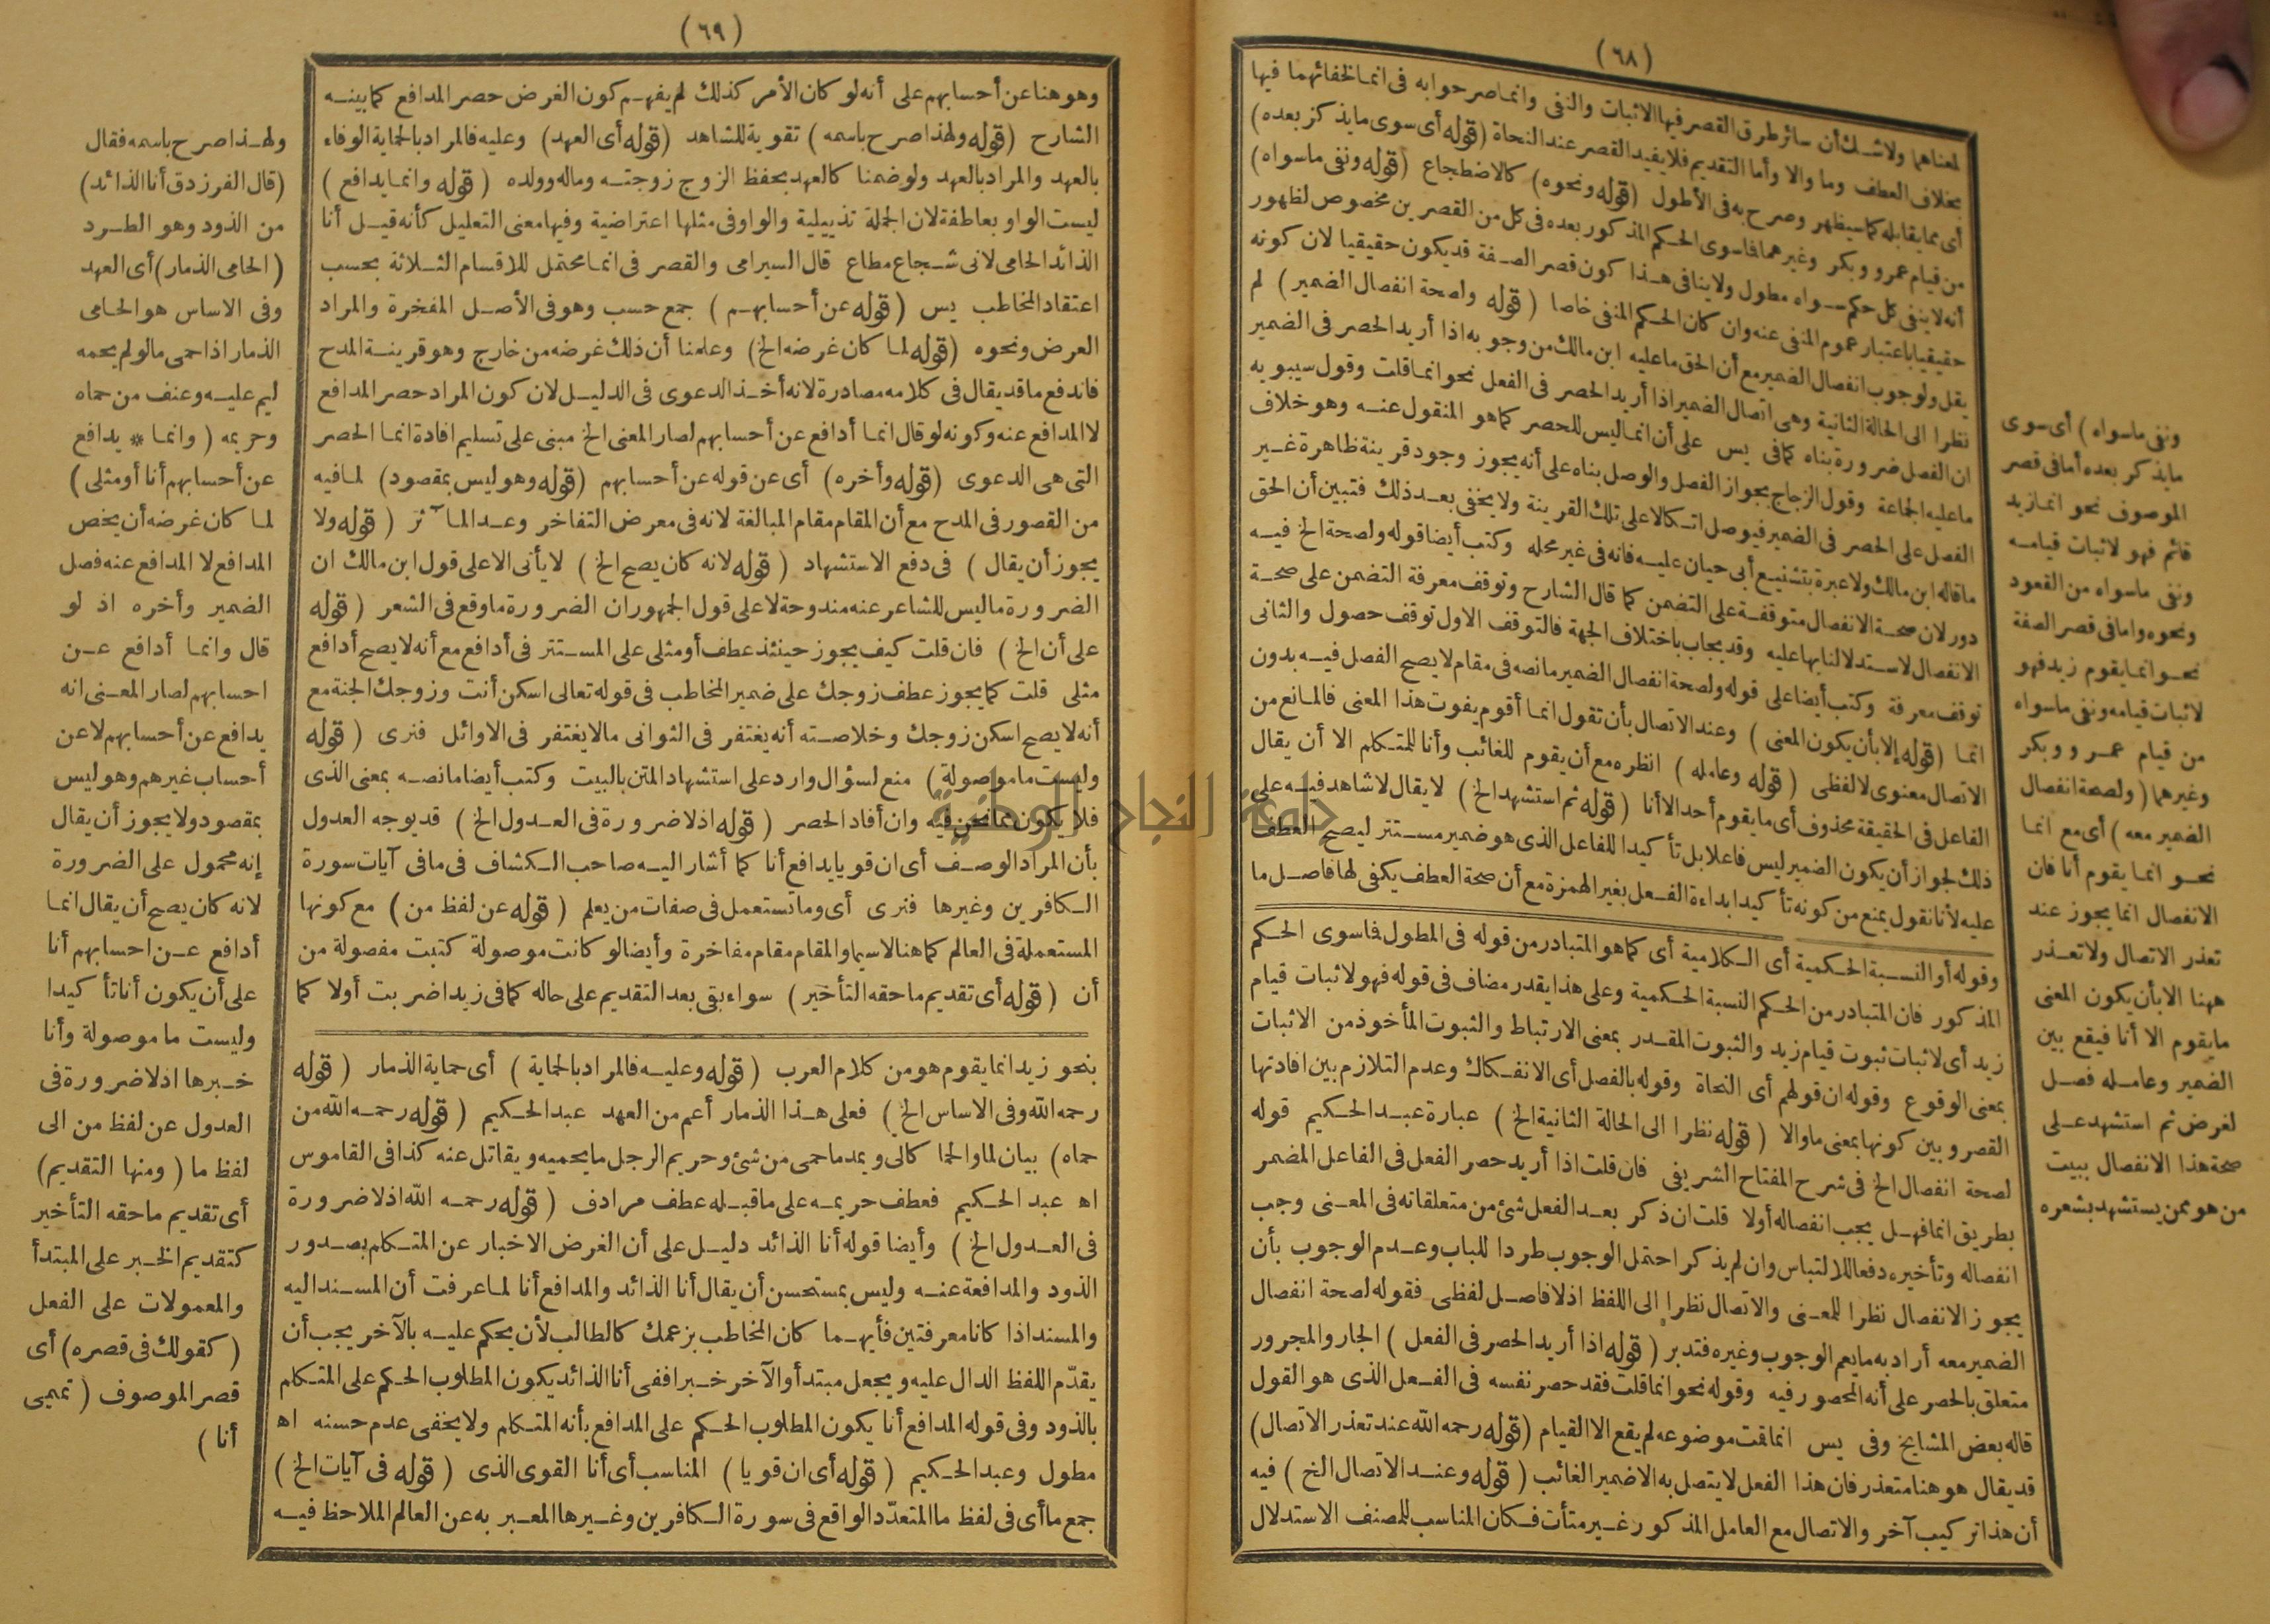 (٦٨)
لمعناهما ولاشك أن سائر طرق القصر فيها الاثبات والنفى وانما صرحوا به فى انما لخفائهما فيها
بخلاف العطف وما والا وأما التقديم فلا يفيد القصر عند النحاة (قوله أى سوى ما يذكر بعده)
أى مما يقابله كما سيظهر وصرح به فى الأطول (قوله ونحوه) كالاضطجاع (قوله ونفى ما سواه)
من قيام عمرو وبكر وغيرهما فما سوى الحكم المذكور بعده فى كل من القصرين مخصوص لظهور
أنه لا ينفى كل حكم سواه مطول ولا ينافى هذا كون قصر الصفة قد يكون حقيقيا لان كونه
حقيقيا باعتبار عموم المنفى عنه وان كان الحكم المنفى خاصا (قوله ولصحة انفصال الضمير) لم
يقل ولوجوب انفصال الضمير مع أن الحق ما عليه ابن مالك من وجوبه اذا أريد الحصر فى الضمير
نظرا الى الحالة الثانية وهى اتصال الضمير اذا أريد الحصر فى الفعل نحو انما قلت وقول سيبويه
ان الفصل ضرورة بناه كما فى يس على أن انما ليس للحصر كما هو المنقول عنه وهو خلاف
ما عليه الجماعة وقول الزجاج بجواز الفصل والوصل بناه على أنه يجوز وجود قرينة ظاهرة غير
الفصل على الحصر فى الضمير فيوصل اتكالا على تلك القرينة ولا يخفى بعد ذلك فتبين أن الحق
ما قاله ابن مالك ولا عبرة بتشنيع أبى حيان عليه فانه فى غير محله وكتب أيضا قوله ولصحة الخ فيه
دور لان صحة الانفصال متوقفة على التضمن كما قال الشارح وتوقف معرفة التضمن على صحة
الانفصال لاستدلالنا بها عليه وقد يجاب باختلاف الجهة فالتوقف الاول توقف حصول والثانى
توقف معرفة وكتب أيضا على قوله ولصحة انفصال الضمير ما نصه فى مقام لا يصح الفصل فيه بدون
انما (قوله إلا بأن يكون المعنى) وعند الاتصال بأن تقول انما أقوم يفوت هذا المعنى فالمانع من
الاتصال معنوى لا لفظى (قوله وعامله) انظره مع أن يقوم للغائب وأنا للمتكلم الا أن يقال
الفاعل فى الحقيقة محذوف أى ما يقوم أحد الا أنا (قوله ثم استشهد الخ) لا يقال لا شاهد فيه على
ذلك لجواز أن يكون الضمير ليس فاعلا بل تأكيدا للفاعل الذى هو ضمير مستتر ليصح العطف
عليه لأنا نقول يمنع من كونه تأكيدا بداءة الفعل بغير الهمزة مع أن صحة العطف يكفى لها فاصل ما
وقوله أو النسبة الحكمية أى الكلامية أى كما هو المتبادر من قوله فى المطول فما سوى الحكم
المذكور فان المتبادر من الحكم النسبة الحكمية وعلى هذا يقدر مضاف فى قوله فهو لاثبات قيام
زيد أى لاثبات ثبوت قيام زيد والثبوت المقدر بمعنى الارتباط والثبوت المأخوذ من الاثبات
بمعنى الوقوع وقوله ان قولهم أى النحاة وقوله بالفصل أى الانفكاك وعدم التلازم بين افادتها
القصر وبين كونها بمعنى ما والا (قوله نظرا الى الحالة الثانية الخ) عبارة عبد الحكيم قوله
لصحة انفصال الخ فى شرح المفتاح الشريفى فان قلت اذا أريد حصر الفعل فى الفاعل المضمر
بطريق انما فهل يجب انفصاله أولا قلت ان ذكر بعد الفعل شئ من متعلقاته فى المعنى وجب
انفصاله وتأخيره دفعا للالتباس وان لم يذكر احتمل الوجوب طردا للباب وعدم الوجوب بأن
يجوز الانفصال نظرا للمعنى والاتصال نظرا الى اللفظ اذ لا فاصل لفظى فقوله لصحة انفصال
الضمير معه أراد به ما يعم الوجوب وغيره فتدبر (قوله اذا أريد الحصر فى الفعل) الجار والمجرور
متعلق بالحصر على أنه المحصور فيه وقوله نحو انما قلت فقد حصر نفسه فى الفعل الذى هو القول
قاله بعض المشايخ وفى يس انما قمت موضوعه لم يقع الا القيام (قوله رحمه الله عند تعذر الاتصال)
قد يقال هو هنا متعذر فان هذا الفعل لا يتصل به الا ضمير الغائب (قوله وعند الاتصال الخ) فيه
أن هذا تركيب آخر والاتصال مع العامل المذكور غير متأت فكان المناسب للمصنف الاستدلال
ونفى ما سواه) أى سوى
ما يذكر بعده أما فى قصر
الموصوف نحو انما زيد
قائم فهو لاثبات قيامه
ونفى ما سواه من القعود
ونحوه واما فى قصر الصفة
نحو انما يقوم زيد فهو
لاثبات قيامه ونفى ما سواه
من قيام عمرو وبكر
وغيرهما (ولصحة انفصال
الضمير معه) أى مع انما
نحو انما يقوم أنا فان
الانفصال انما يجوز عند
تعذر الاتصال ولا تعذر
ههنا الا بأن يكون المعنى
ما يقوم الا أنا فيقع بين
الضمير وعامله فصل
لغرض ثم استشهد على
صحة هذا الانفصال ببيت
من هو ممن يستشهد بشعره
(٦٩)
وهو هنا عن أحسابهم على أنه لو كان الأمر كذلك لم يفهم كون الغرض حصر المدافع كما بينه
الشارح (قوله ولهذا صرح باسمه) تقوية للشاهد (قوله أى العهد) وعليه فالمراد بالحماية الوفاء
بالعهد والمراد بالعهد ولو ضمنا كالعهد بحفظ الزوج زوجته وماله وولده (قوله وانما يدافع)
ليست الواو بعاطفة لان الجملة تذييلية والواو فى مثلها اعتراضية وفيها معنى التعليل كأنه قيل أنا
الذائد الحامى لانى شجاع مطاع قال السيرامى والقصر فى انما محتمل للاقسام الثلاثة بحسب
اعتقاد المخاطب يس (قوله عن أحسابهم) جمع حسب وهو فى الأصل المفخرة والمراد
العرض ونحوه (قوله لما كان غرضه الخ) وعلمنا أن ذلك غرضه من خارج وهو قرينة المدح
فاندفع ما قد يقال فى كلامه مصادرة لانه أخذ الدعوى فى الدليل لان كون المراد حصر المدافع
لا المدافع عنه وكونه لو قال انما أدافع عن أحسابهم لصار المعنى الخ مبنى على تسليم افادة انما الحصر
التى هى الدعوى (قوله وأخره) أى عن قوله عن أحسابهم (قوله وهو ليس بمقصود) لما فيه
من القصور فى المدح مع أن المقام مقام المبالغة لانه فى معرض التفاخر وعد المآثر (قوله ولا
يجوز أن يقال) فى دفع الاستشهاد (قوله لانه كان يصح الخ) لا يأتى الا على قول ابن مالك ان
الضرورة ما ليس للشاعر عنه مندوحة لا على قول الجمهور ان الضرورة ما وقع فى الشعر (قوله
على أن الخ) فان قلت كيف يجوز حينئذ عطف أو مثلى على المستتر فى أدافع مع أنه لا يصح أدافع
مثلى قلت كما يجوز عطف زوجك على ضمير المخاطب فى قوله تعالى اسكن أنت وزوجك الجنة مع
أنه لا يصح اسكن زوجك وخلاصته أنه يغتفر فى الثوانى ما لا يغتفر فى الاوائل فنرى (قوله
وليست ما موصولة) منع لسؤال وارد على استشهاد المتن بالبيت وكتب أيضا ما نصه بمعنى الذى
فلا يكون مما نحن فيه وان أفاد الحصر (قوله اذ لا ضرورة فى العدول الخ) قد يوجه العدول
بأن المراد الوصف أى ان قويا يدافع أنا كما أشار اليه صاحب الكشاف فى ما فى آيات سورة
الكافرين وغيرها فنرى أى وما تستعمل فى صفات من يعلم (قوله عن لفظ من) مع كونها
المستعملة فى العالم كما هنا لا سيما والمقام مقام مفاخرة وأيضا لو كانت موصولة كتبت مفصولة من
أن (قوله أى تقديم ما حقه التأخير) سواء بقى بعد التقديم على حاله كما فى زيدا ضربت أولا كما
بنحو زيد انما يقوم هو من كلام العرب (قوله وعليه فالمراد بالحماية) أى حماية الذمار (قوله
رحمه الله وفى الاساس الخ) فعلى هذا الذمار أعم من العهد عبد الحكيم (قوله رحمه الله من
حماه) بيان لما والحما كالى ويمد ما حمى من شئ وحريم الرجل ما يحميه ويقاتل عنه كذا فى القاموس
اه عبد الحكيم فعطف حريمه على ما قبله عطف مرادف (قوله رحمه الله اذ لا ضرورة
فى العدول الخ) وأيضا قوله أنا الذائد دليل على أن الغرض الاخبار عن المتكلم بصدور
الذود والمدافعة عنه وليس بمستحسن أن يقال أنا الذائد والمدافع أنا لما عرفت أن المسند اليه
والمسند اذا كانا معرفتين فأيهما كان المخاطب بزعمك كالطالب لأن يحكم عليه بالآخر يجب أن
يقدّم اللفظ الدال عليه ويجعل مبتدأ والآخر خبرا ففى أنا الذائد يكون المطلوب الحكم على المتكلم
بالذود وفى قوله المدافع أنا يكون المطلوب الحكم على المدافع بأنه المتكلم ولا يخفى عدم حسنه اه
مطول وعبد الحكيم (قوله أى ان قويا) المناسب أى أنا القوى الذى (قوله فى آيات الخ)
جمع ما أى فى لفظ ما المتعدّد الواقع فى سورة الكافرين وغيرها المعبر به عن العالم الملاحظ فيه
ولهذا صرح باسمه فقال
(قال الفرزدق أنا الذائد)
من الذود وهو الطرد
(الحامى الذمار) أى العهد
وفى الاساس هو الحامى
الذمار اذا حمى ما لو لم يحمه
ليم عليه وعنف من حماه
وحريمه (وانما * يدافع
عن أحسابهم أنا أو مثلى)
لما كان غرضه أن يخص
المدافع لا المدافع عنه فصل
الضمير وأخره اذ لو
قال وانما أدافع عن
احسابهم لصار المعنى انه
يدافع عن أحسابهم لا عن
أحساب غيرهم وهو ليس
بمقصود ولا يجوز أن يقال
إنه محمول على الضرورة
لانه كان يصح أن يقال انما
أدافع عن احسابهم أنا
على أن يكون أنا تأكيدا
وليست ما موصولة وأنا
خبرها اذ لا ضرورة فى
العدول عن لفظ من الى
لفظ ما (ومنها التقديم)
أى تقديم ما حقه التأخير
كتقديم الخبر على المبتدأ
والمعمولات على الفعل
(كقولك فى قصره) أى
قصر الموصوف (تميمى
أنا)
جامعة النجاح الوطنية